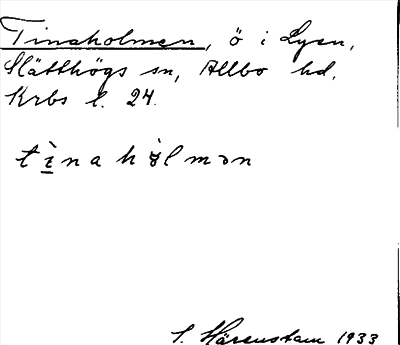 Tinaholmen, ö i Lyen,
Slätthögs sn, Allbo hd.
Krbs l. 24.
tì̱nahòlmən
S. Härenstam 1933